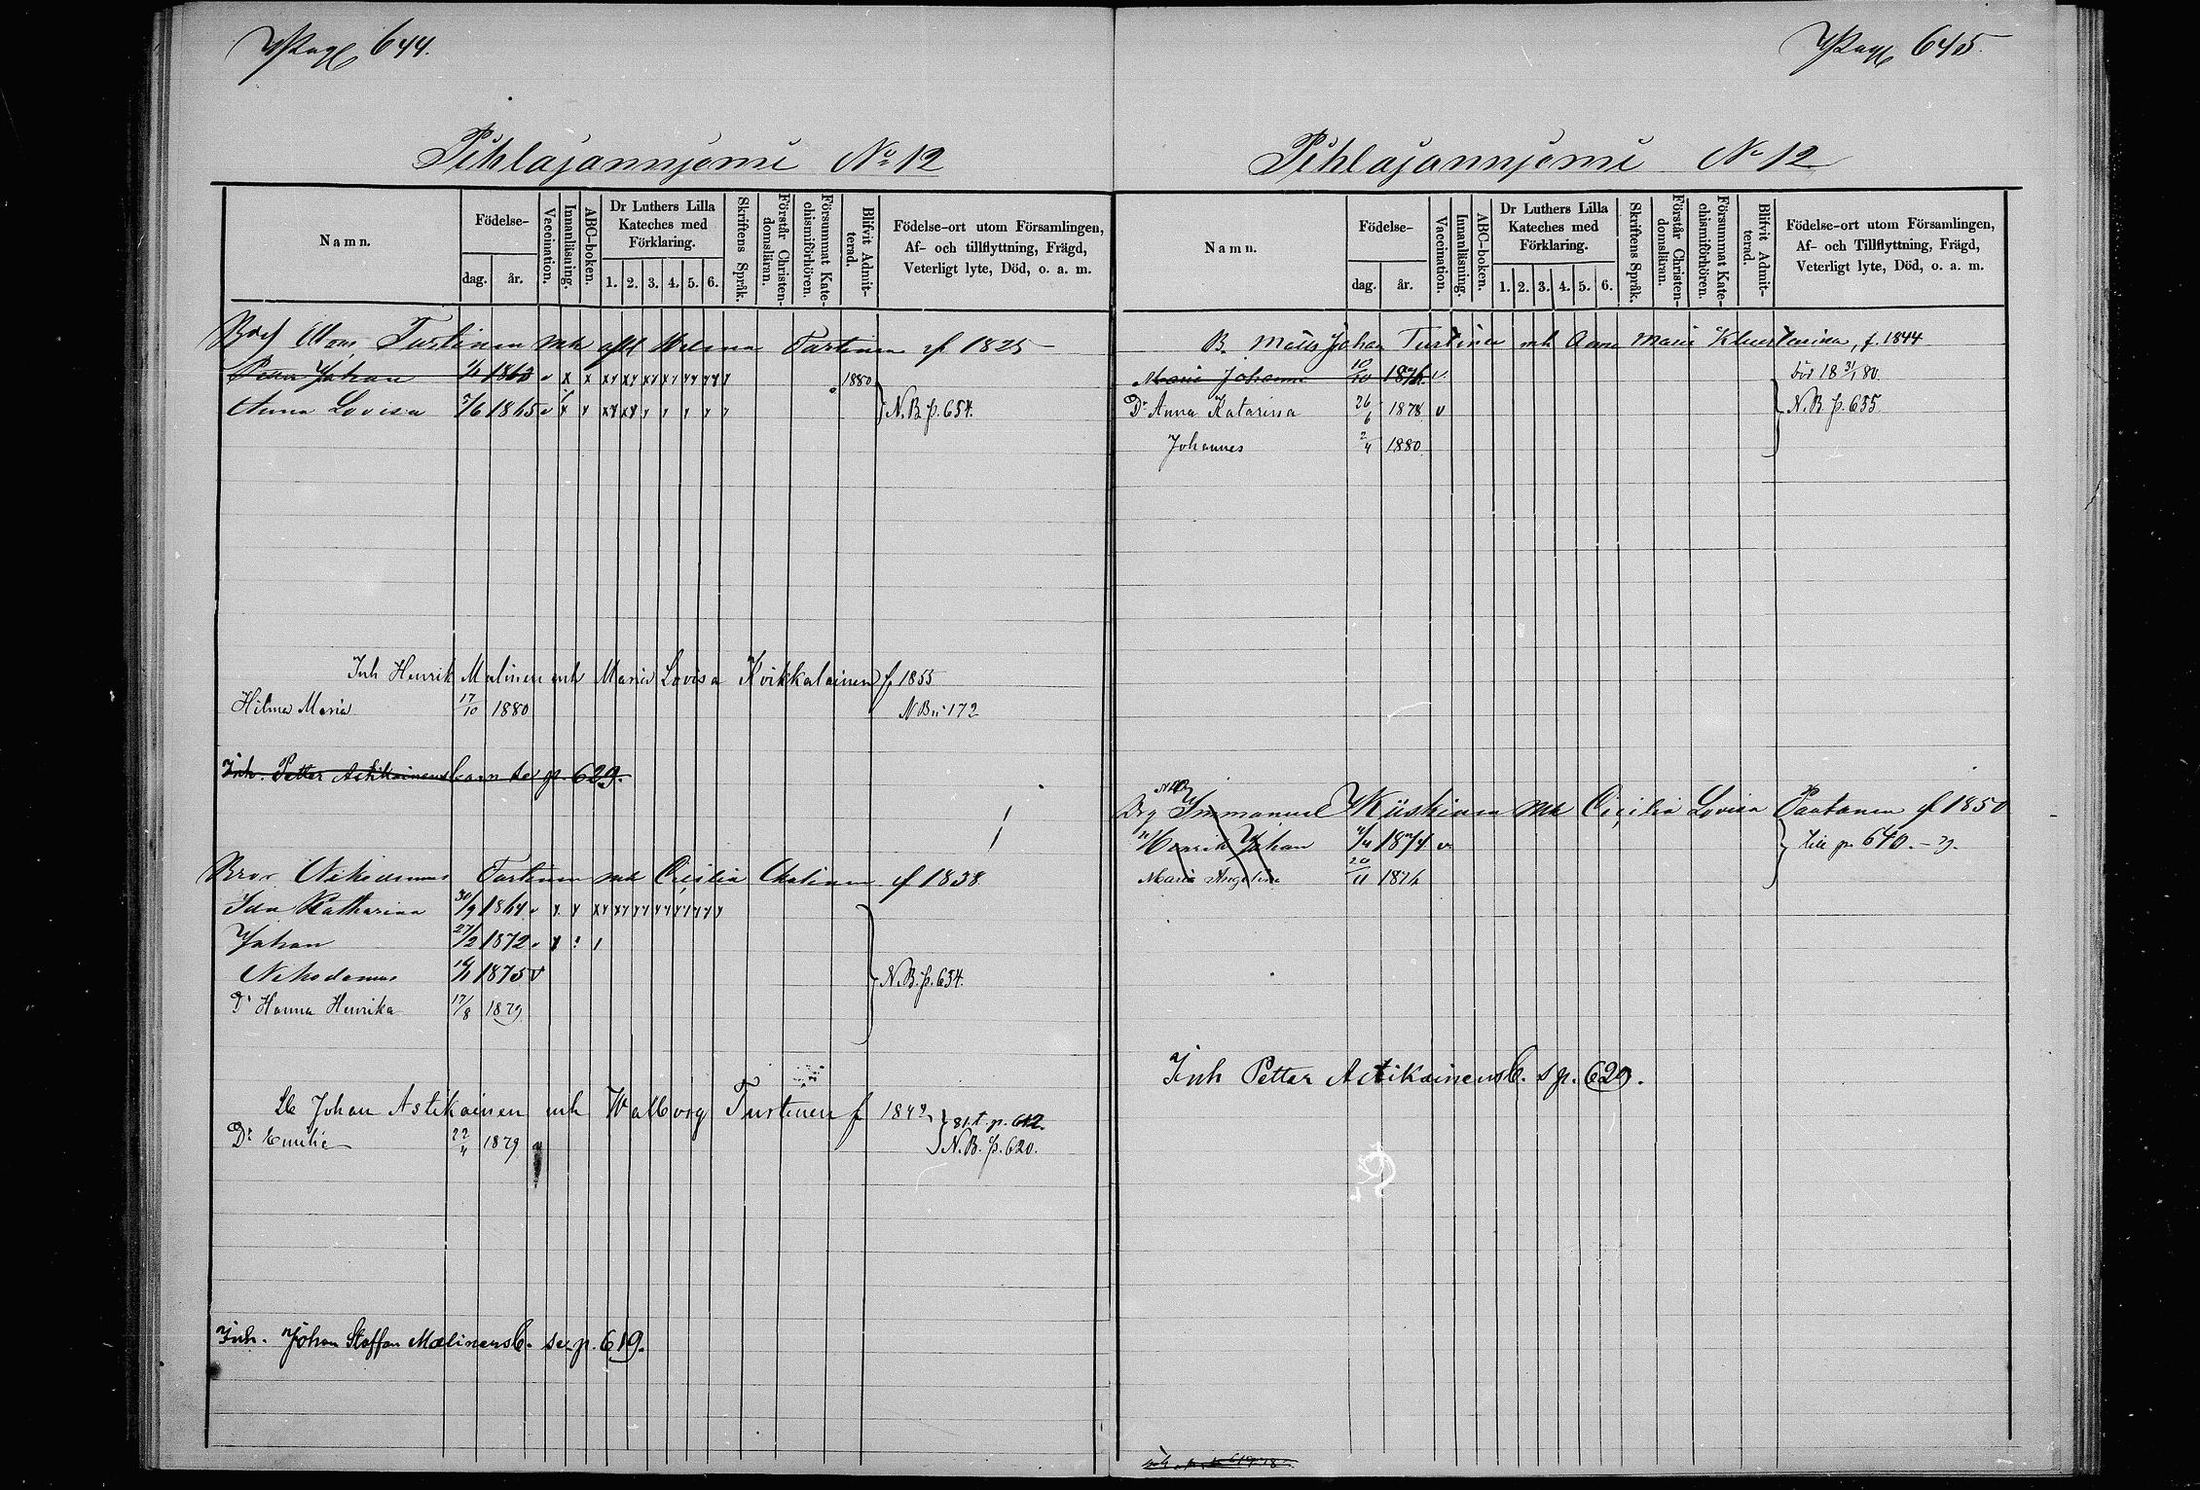 Pag 644.
Pihlajanniemi No 12
Namn.
Födelse-
dag.
år.
Vaccination.
Innanläsning.
ABC-boken.
Dr Luthers Lilla
Kateches med
Förklaring.
1. 2. 3. 4. 5. 6.
Skriftens Språk.
Förstår Christen-
domsläran.
Försummat Kate-
chismiförhören.
Blifvit Admit-
terad.
Födelse-ort utom Församlingen,
Af- och tillflyttning, Frägd,
Veterligt lyte, Död, o. a. m.
Turtinen mh Helena Turtinen f 1825
Petter Johan 1863 1880
Anna Lovisa 5/6 1865 N.B. p. 654.
Inh Henrik Malinen mh Maria Lovisa Kvikkalainen f 1855
Hilma Maria 17/10 1880 N B 172
Inh. Petter Astikainens barn se p. 629.
Nikodemus Turtinen mh Cecilia f 1838
Ida Katharina 30/9 1864
Johan 27/2 1872
Nikodemus 1875 v N.B. p. 654.
Dr Hanna Henrika 17/8 1879
Johan Astikainen mh Walborg Turtinen f 1842 81 t. p. 612.
Dr Emilie 22/4 1879 N.B. p. 620.
Inh. Johan Staffan Malinens b. se p. 619.
Pag 645.
Pihlajanniemi No 12
Namn.
Födelse-
dag.
år.
Vaccination.
Innanläsning.
ABC-boken.
Dr Luthers Lilla
Kateches med
Förklaring.
1. 2. 3. 4. 5. 6.
Skriftens Språk.
Förstår Christen-
domsläran.
Försummat Kate-
chismiförhören.
Blifvit Admit-
terad.
Födelse-ort utom Församlingen,
Af- och Tillflyttning, Frägd,
Veterligt lyte, Död, o. a. m.
B. Matts Johan Turtinen mh Anna Maria f. 1844
Maria Johanna 10/10 1876 v död 18 31/1 80.
Dr Anna Katarina 26/6 1878 v N.B. p. 655.
Johannes 2/4 1880
Immanuel Kiiskinen mh Cecilia Lovisa Pautanen f 1850
Henrik Johan 1874 v till p. 640.
Maria Angelina 20/11 1876
Inh Petter Astikainens b. s p. 629.